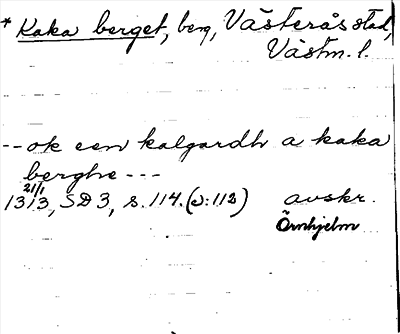 * Kaka berget, berg, Västerås stad,
Västm. l.
-- ok een kalgardh a kaka
berghe ---
21/1
1313, SD 3, s. 114. (c:112) avskr.
Örnhjelm